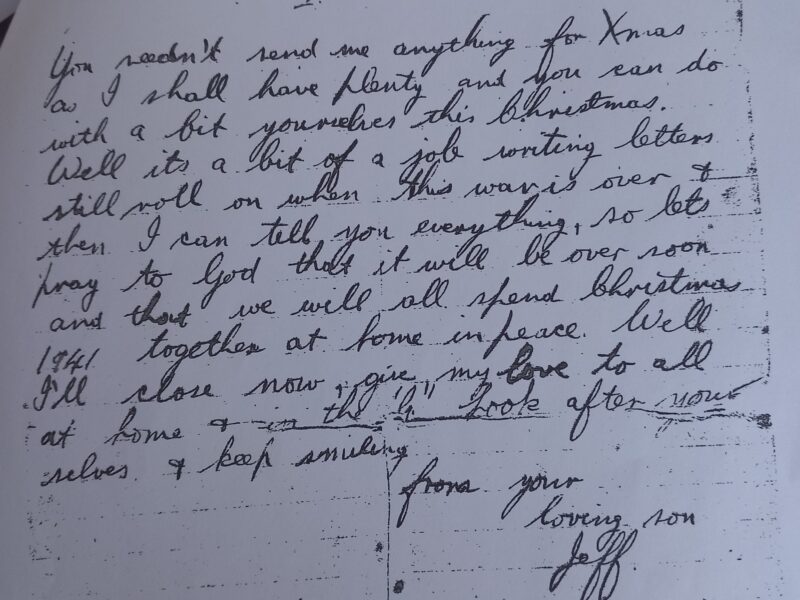 You needn't send me anything for Xmas
as I shall have plenty and you can do
with a bit yourselves this Christmas.
Well its a bit of a job writing letters
still roll on when this war is over &
then I can tell you everything, so lets
pray to God that it will be over soon
and that we will all spend Christmas
1941 together at home in peace. Well
I'll close now, give my love to all
at home & in the "G" Look after your
selves & keep smiling
from your
loving son
Jeff.